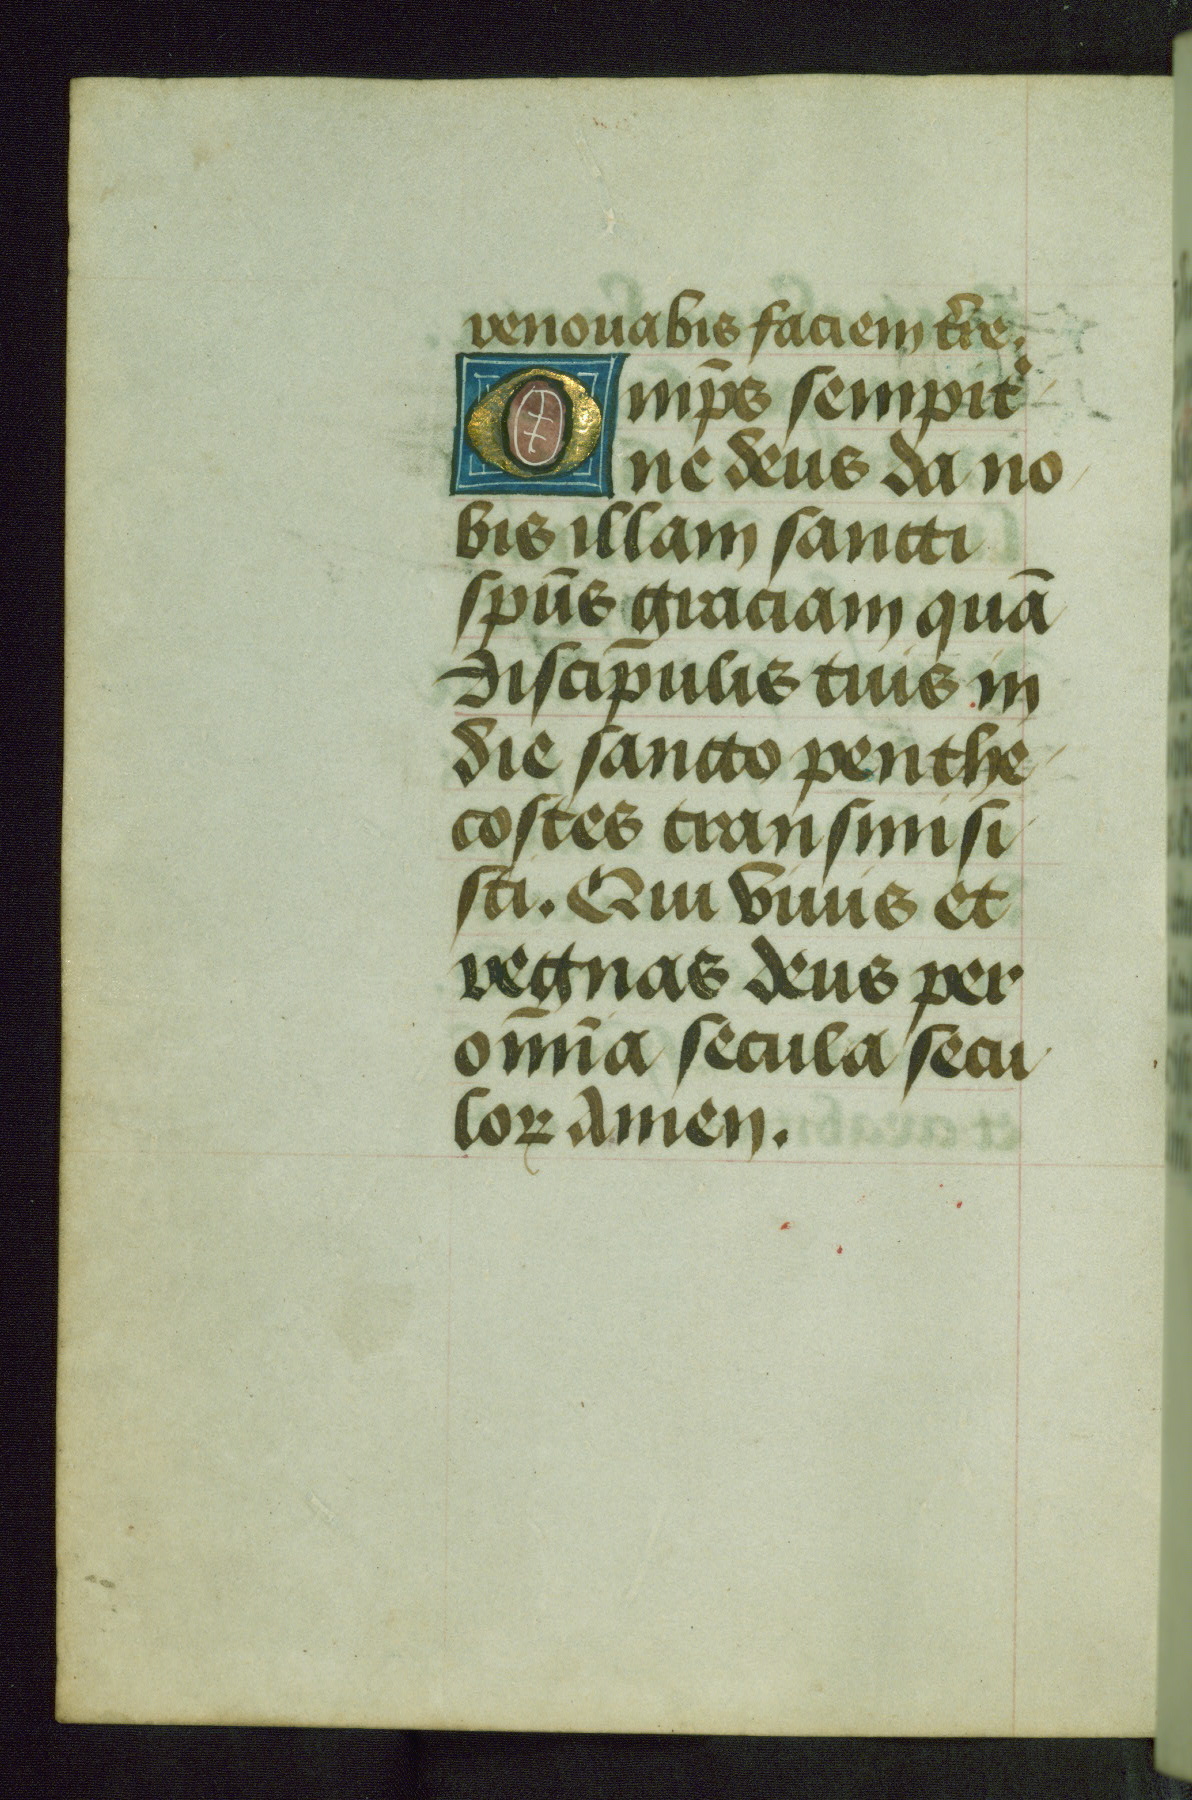 renouabis faciem t̄re.
Omp̄s sempit᷒
ne deus da no
bis illam sancti
spūs graciam quā
discipulis tuis in
die sancto penthe
costes transmisi
sti. Qui viuis et
regnas deus per
om̄ia secula secu
loꝝ Amen.